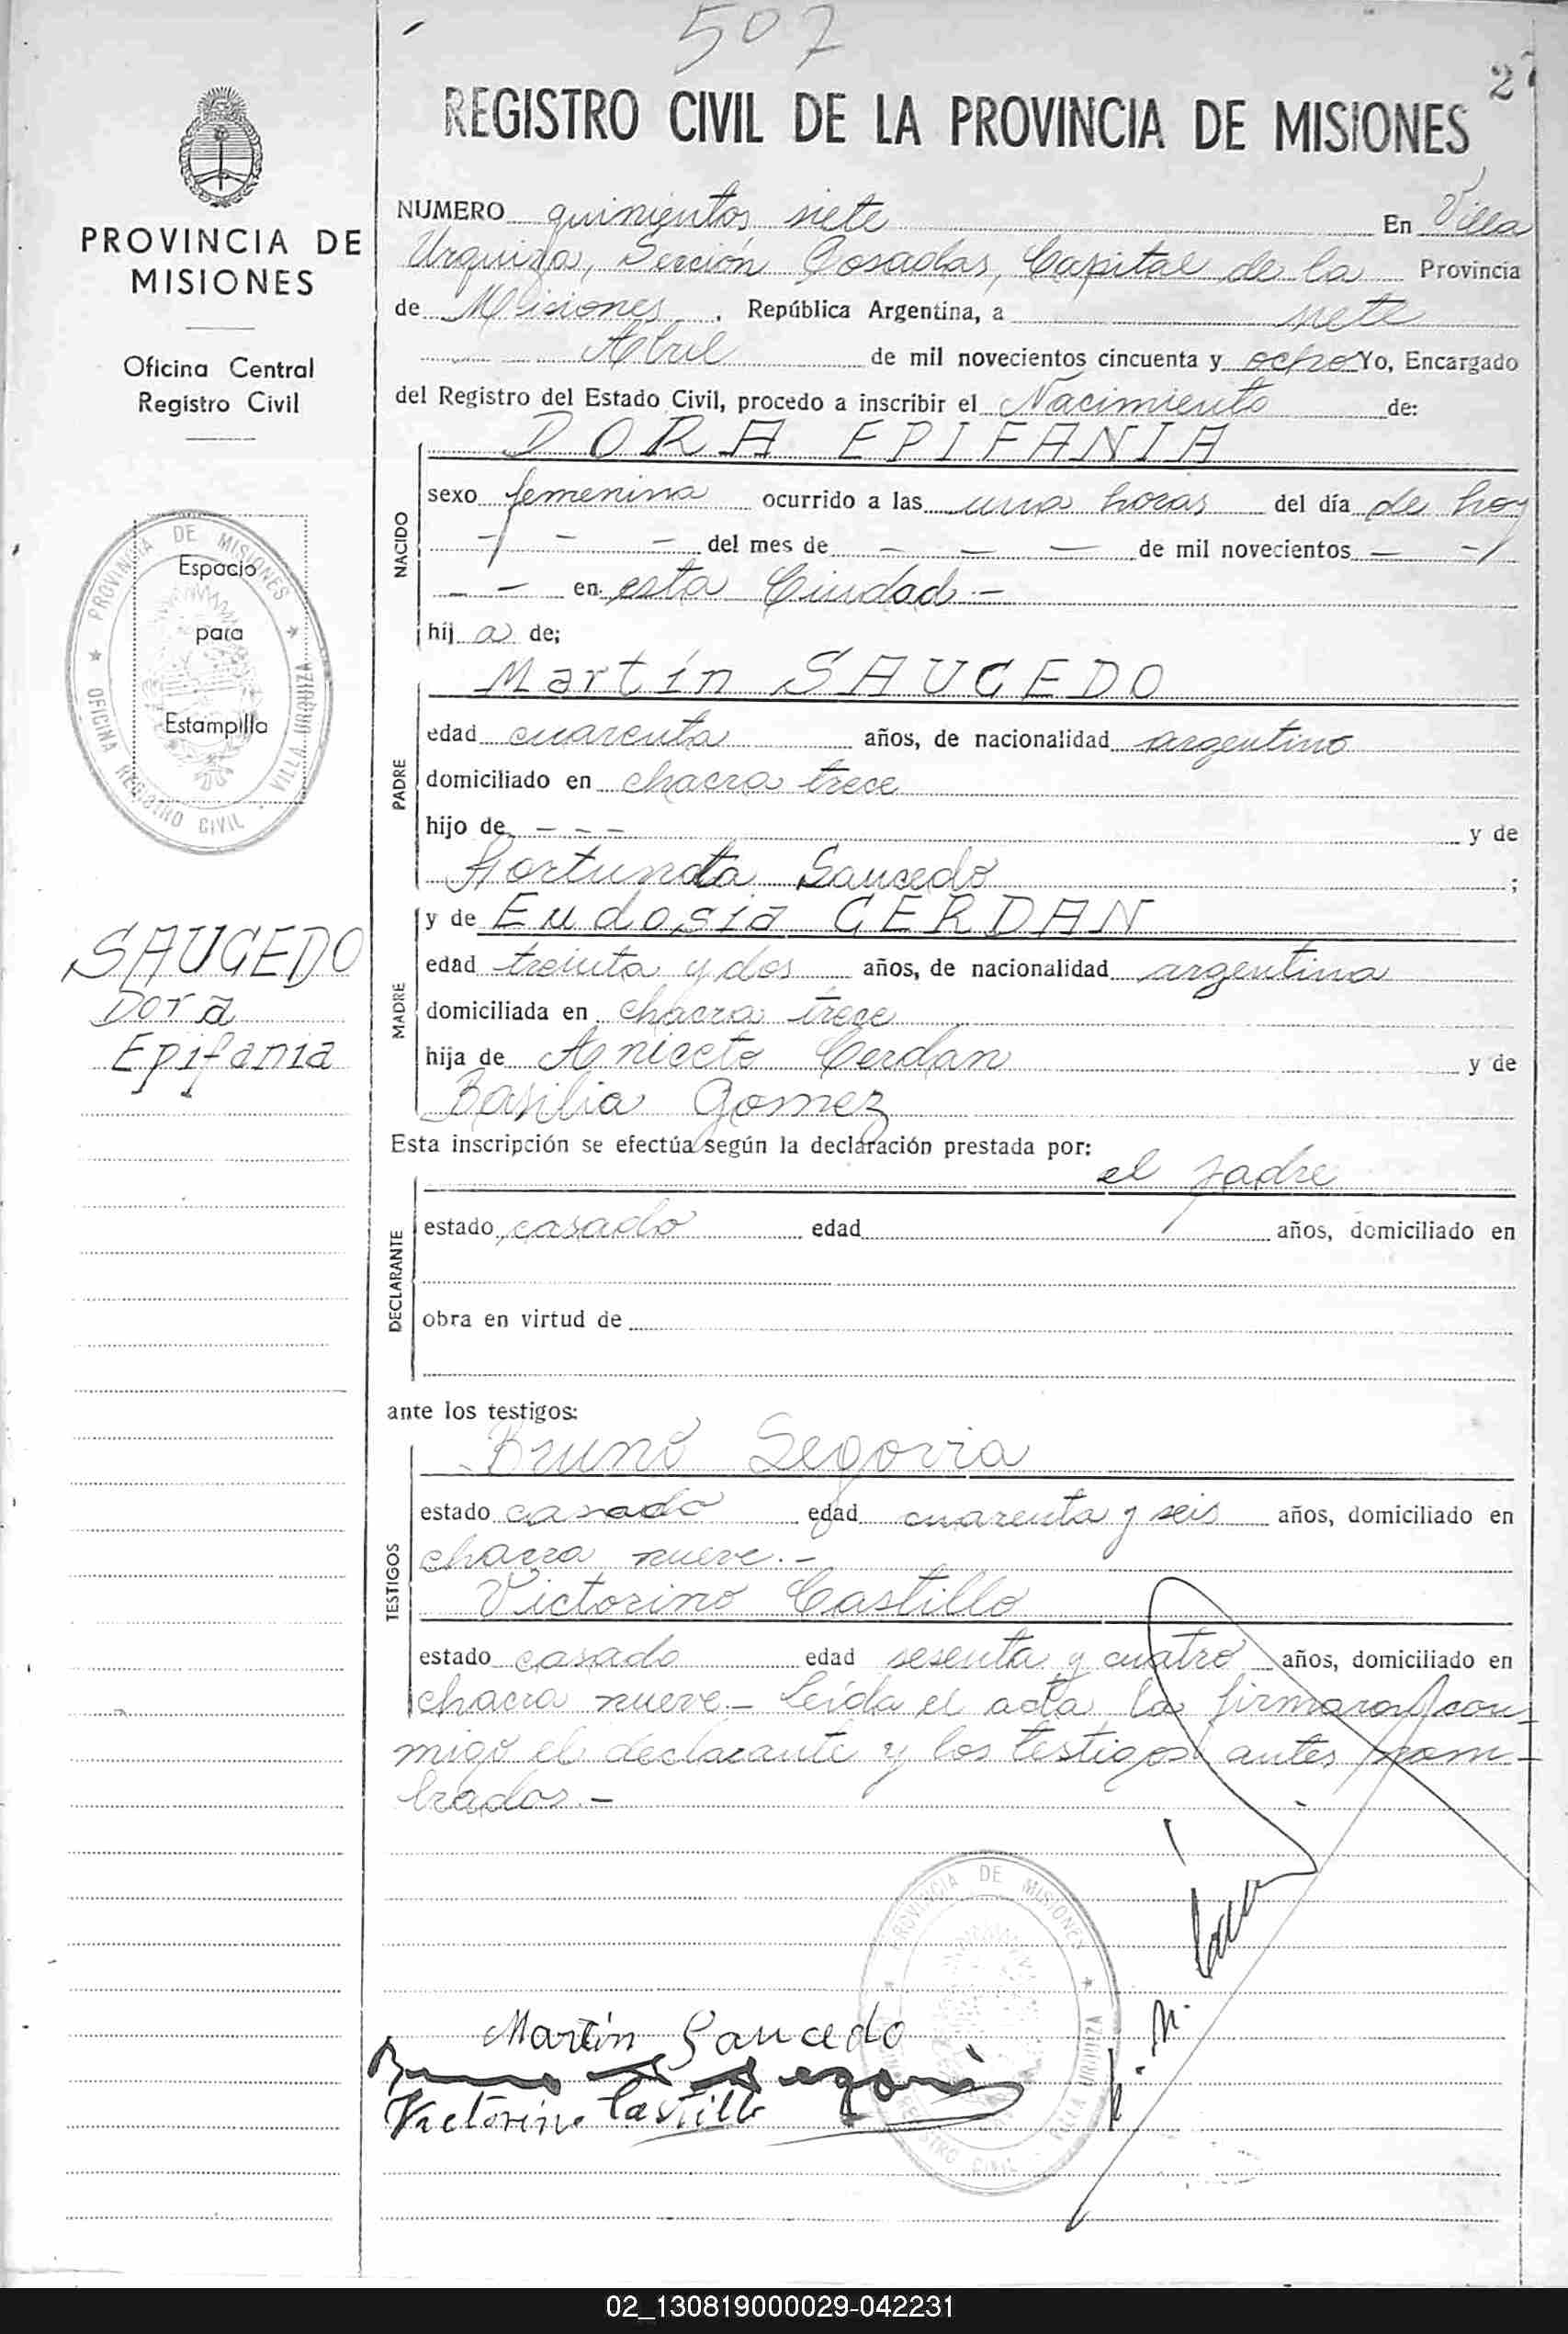 507
27
REGISTRO CIVIL DE LA PROVINCIA DE MISIONES
PROVINCIA DE
MISIONES
Oficina Central
Registro Civil
PROVINCIA DE MISIONES
OFICINA REGISTRO CIVIL · VILLA URQUIZA
Espacio
para
Estampilla
SAUCEDO
Dora
Epifania
NUMERO quinientos siete En Villa
Urquiza, Sección Posadas, Capital de la Provincia
de Misiones, República Argentina, a siete
Abril de mil novecientos cincuenta y ocho Yo, Encargado
del Registro del Estado Civil, procedo a inscribir el Nacimiento de:
NACIDO
DORA EPIFANIA
sexo femenina ocurrido a las una horas del día de hoy
- - - del mes de - - - de mil novecientos - -
- - en esta Ciudad.-
hij a de;
PADRE
Martín SAUCEDO
edad cuarenta años, de nacionalidad argentino
domiciliado en chacra trece
hijo de - - - y de
Fortunata Saucedo ;
MADRE
y de Eudosia CERDAN
edad treinta y dos años, de nacionalidad argentina
domiciliada en chacra trece
hija de Aniceto Cerdan y de
Basilia Gomez
Esta inscripción se efectúa según la declaración prestada por:
DECLARANTE
el padre
estado casado edad años, domiciliado en
obra en virtud de
ante los testigos:
TESTIGOS
Bruno Segovia
estado casado edad cuarenta y seis años, domiciliado en
chacra nueve.-
Victorino Castillo
estado casado edad sesenta y cuatro años, domiciliado en
chacra nueve.- Leída el acta la firmaron con-
migo el declarante y los testigos antes nom-
brados.-
PROVINCIA DE MISIONES
REGISTRO CIVIL VILLA URQUIZA
Martín Saucedo
Bruno Segovia
Victorino Castillo
02_130819000029-042231